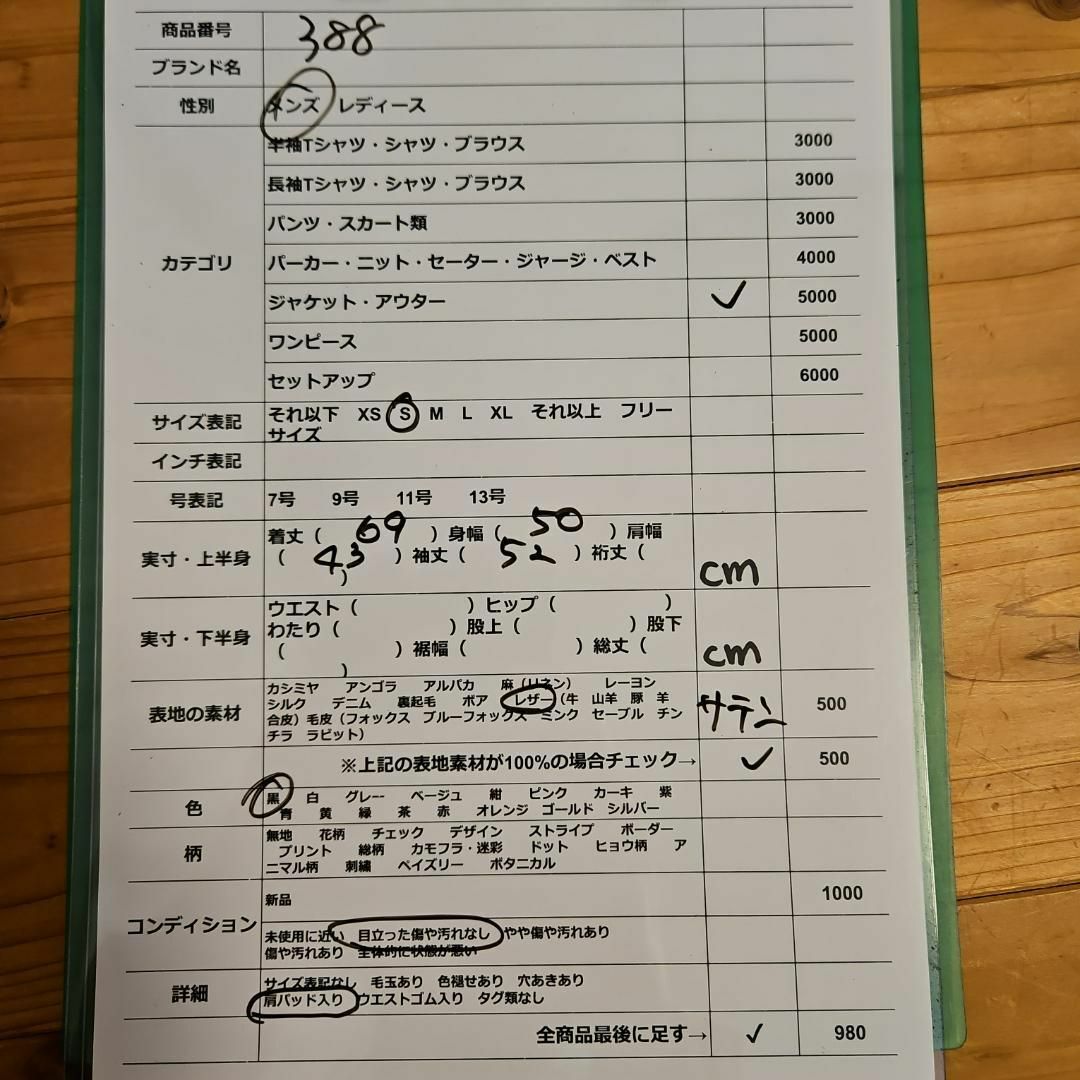 商品番号 388
ブランド名
性別 メンズ レディース
半袖Tシャツ・シャツ・ブラウス 3000
長袖Tシャツ・シャツ・ブラウス 3000
パンツ・スカート類 3000
カテゴリ パーカー・ニット・セーター・ジャージ・ベスト 4000
ジャケット・アウター ✓ 5000
ワンピース 5000
セットアップ 6000
サイズ表記 それ以下 XS S M L XL それ以上 フリー
サイズ
インチ表記
号表記 7号 9号 11号 13号
実寸・上半身 着丈（ 69 ）身幅（ 50 ）肩幅
（ 43 ）袖丈（ 52 ）裄丈（
） cm
実寸・下半身 ウエスト（ ）ヒップ（ ）
わたり（ ）股上（ ）股下
（ ）裾幅（ ）総丈（
） cm
表地の素材 カシミヤ アンゴラ アルパカ 麻（リネン） レーヨン
シルク デニム 裏起毛 ボア レザー（牛 山羊 豚 羊 サテン 500
合皮）毛皮（フォックス ブルーフォックス ミンク セーブル チン
チラ ラビット）
※上記の表地素材が100%の場合チェック→ ✓ 500
色 黒 白 グレー- ベージュ 紺 ピンク カーキ 紫
青 黄 緑 茶 赤 オレンジ ゴールド シルバー
柄 無地 花柄 チェック デザイン ストライプ ボーダー
プリント 総柄 カモフラ・迷彩 ドット ヒョウ柄 ア
ニマル柄 刺繍 ペイズリー ボタニカル
コンディション 新品 1000
未使用に近い 目立った傷や汚れなし やや傷や汚れあり
傷や汚れあり 全体的に状態が悪い
詳細 サイズ表記なし 毛玉あり 色褪せあり 穴あきあり
肩パッド入り ウエストゴム入り タグ類なし
全商品最後に足す→ ✓ 980